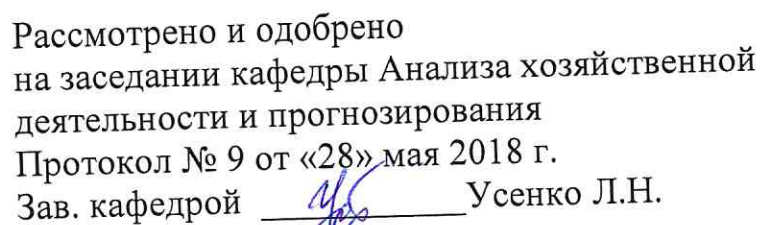 Рассмотрено и одобрено
на заседании кафедры Анализа хозяйственной
деятельности и прогнозирования
Протокол № 9 от «28» мая 2018 г.
Зав. кафедрой ____________Усенко Л.Н.